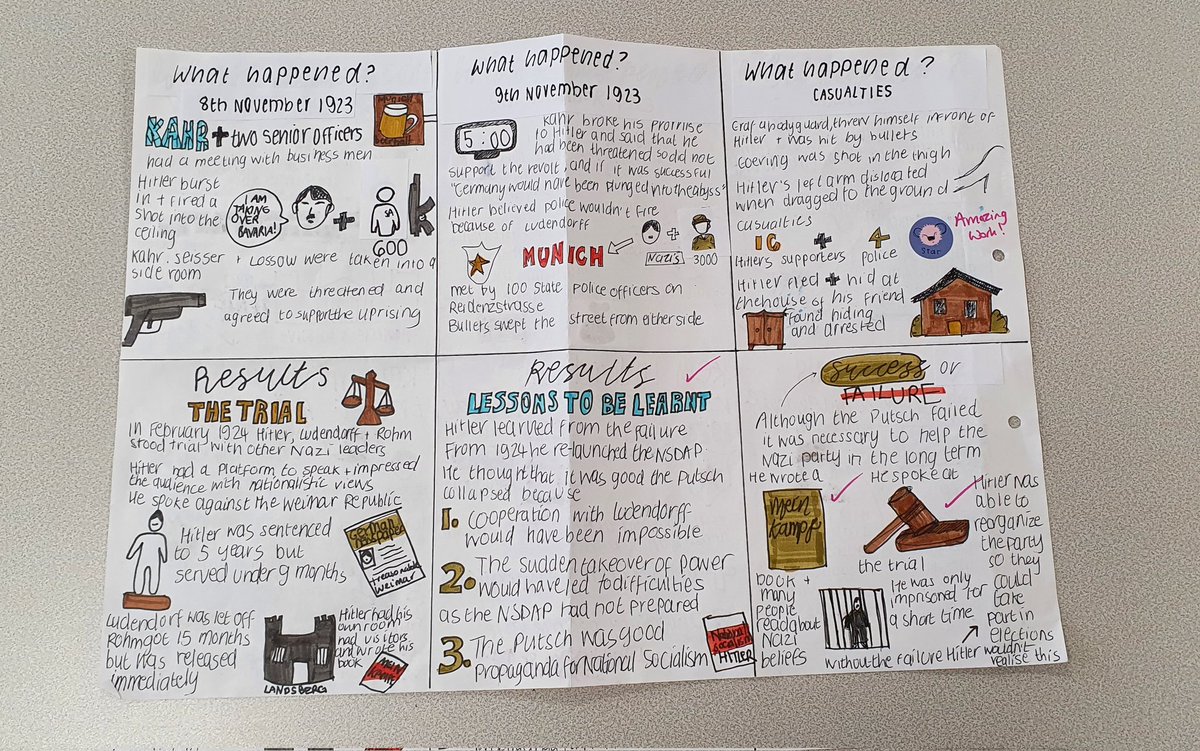 What happened?
8th November 1923
MUNICH
KAHR + two senior officers
had a meeting with business men
Hitler burst
in + fired a
shot into the
ceiling
I AM
TAKING
OVER
BAVARIA!
+
SA
600
Kahr, Seisser + Lossow were taken into a
side room
They were threatened and
agreed to support the uprising
What happened?
9th November 1923
5:00
Kahr broke his promise
to Hitler and said that he
had been threatened so did not
support the revolt, and if it was successful
"Germany would have been plunged into the abyss"
Hitler believed police wouldn't fire
because of Ludendorff
MUNICH
+
Nazis
3000
met by 100 State police officers on
Reidenzstrasse
Bullets swept the street from either side
What happened?
CASUALTIES
Graf a bodyguard, threw himself infront of
Hitler + was hit by bullets
Goering was shot in the thigh
Hitler's left arm dislocated
when dragged to the ground
casualties
16 + 4
Hitlers supporters police
STAR
Amazing
Work!
Hitler fled + hid at
the house of his friend
found hiding
and arrested
Results
THE TRIAL
In February 1924 Hitler, Ludendorff + Rohm
stood trial with other Nazi leaders
Hitler had a platform to speak + impressed
the audience with nationalistic views
He spoke against the Weimar Republic
Hitler was sentenced
to 5 years but
served under 9 months
German
newspaper
weimar
Ludendorff was let off
Rohm got 15 months
but was released
immediately
LANDSBERG
Hitler had his
own room
had visitors
and wrote his
book
Mein
Kampf
Results
LESSONS TO BE LEARNT
Hitler learned from the failure
From 1924 he re-launched the NSDAP
He thought that it was good the Putsch
collapsed because
1. cooperation with Ludendorff
would have been impossible
2. The sudden takeover of power
would have led to difficulties
as the NSDAP had not prepared
3. The Putsch was good
propaganda for National Socialism
National
Socialism
HITLER
Success or
FAILURE
Although the Putsch failed
it was necessary to help the
Nazi party in the long term
He wrote a
Mein
Kampf
book +
many
people
read about
Nazi
beliefs
He spoke at
the trial
He was only
imprisoned for
a short time
Hitler was
able to
reorganize
the party
so they
could
take
part in
elections
without the failure Hitler wouldn't
realise this